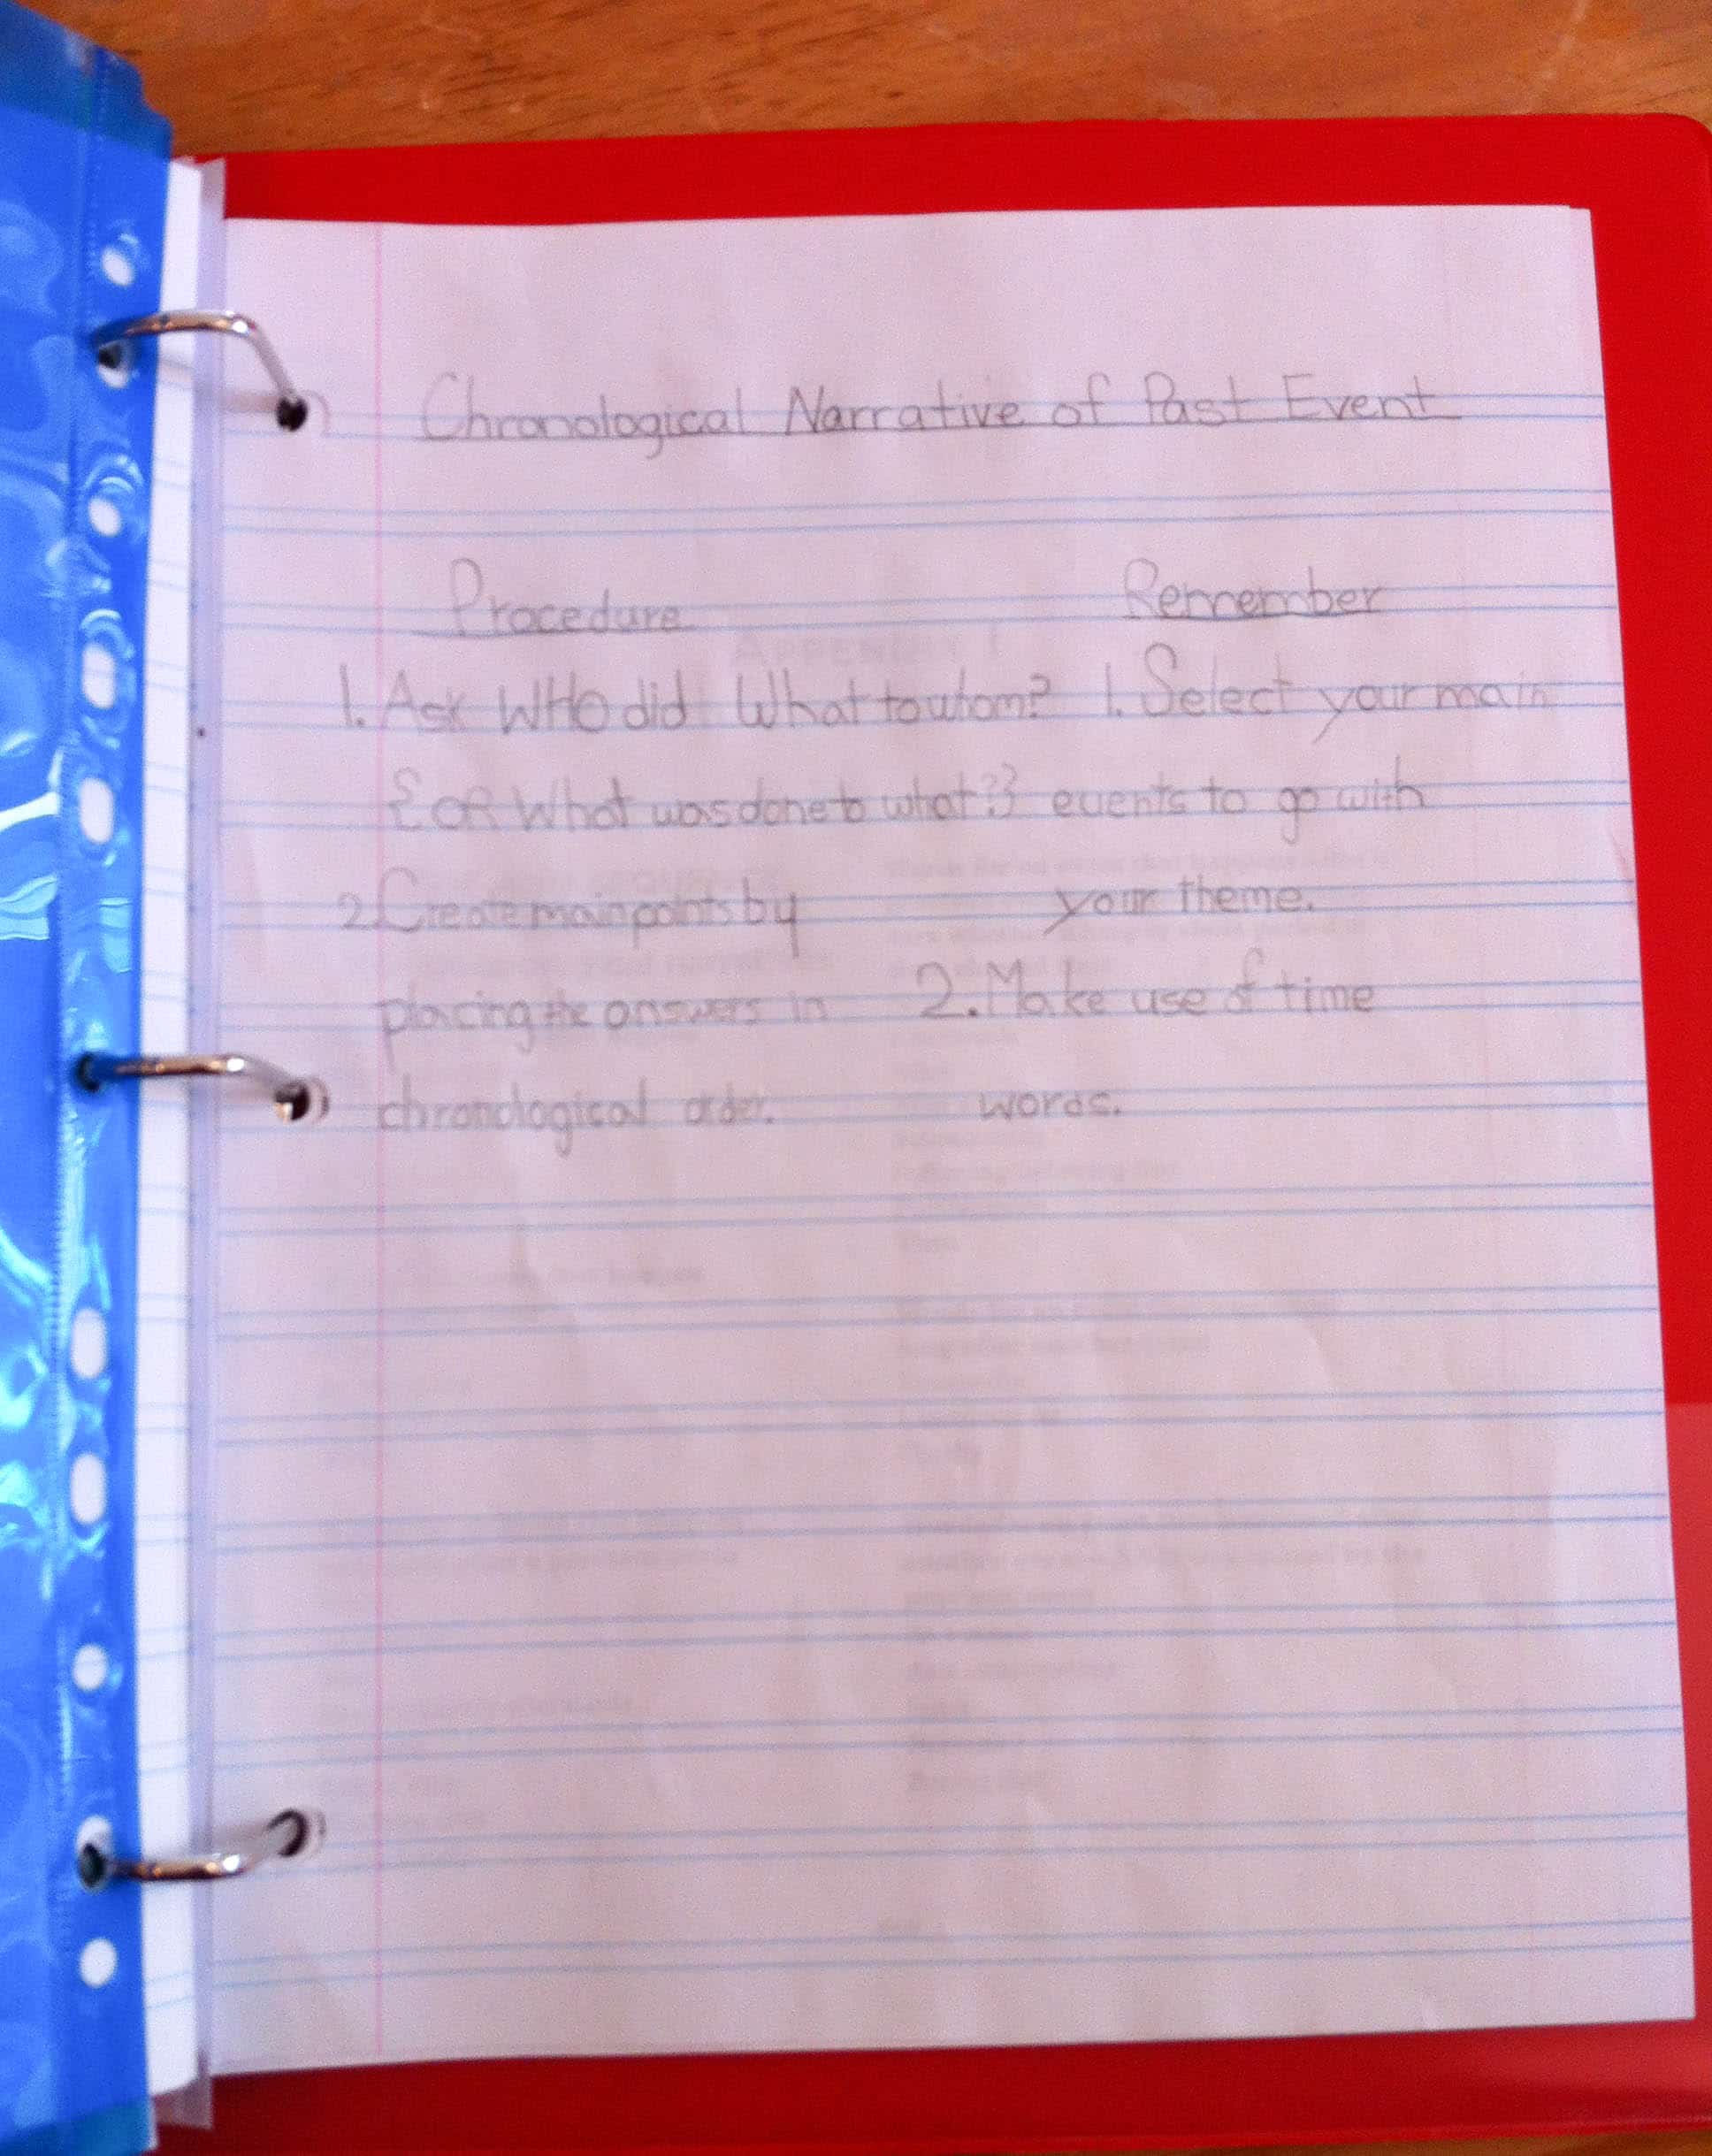 Chronological Narrative of Past Event
Procedure
1. Ask WHO did What to whom?
{OR What was done to what?}
2. Create main points by
placing the answers in
chronological order.
Remember
1. Select your main
events to go with
your theme.
2. Make use of time
words.
APPENDIX I